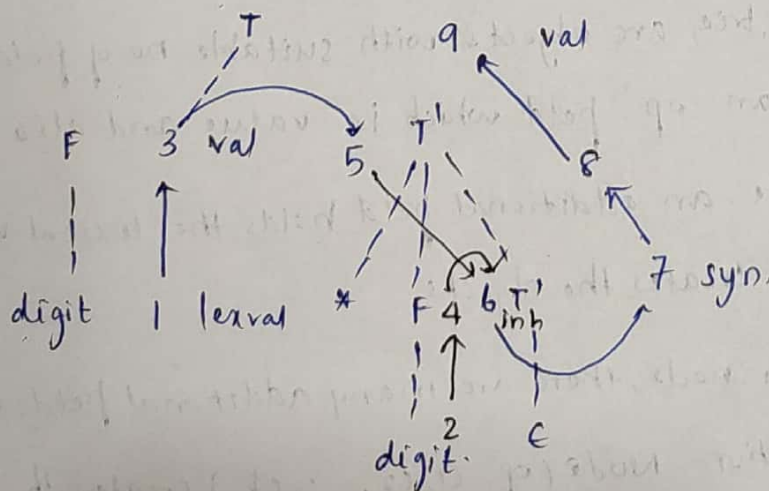 T
9 val
F 3 val 5 T' 8
digit 1 lexval * F 4 6 T' 7 syn.
inh
2 ε
digit.